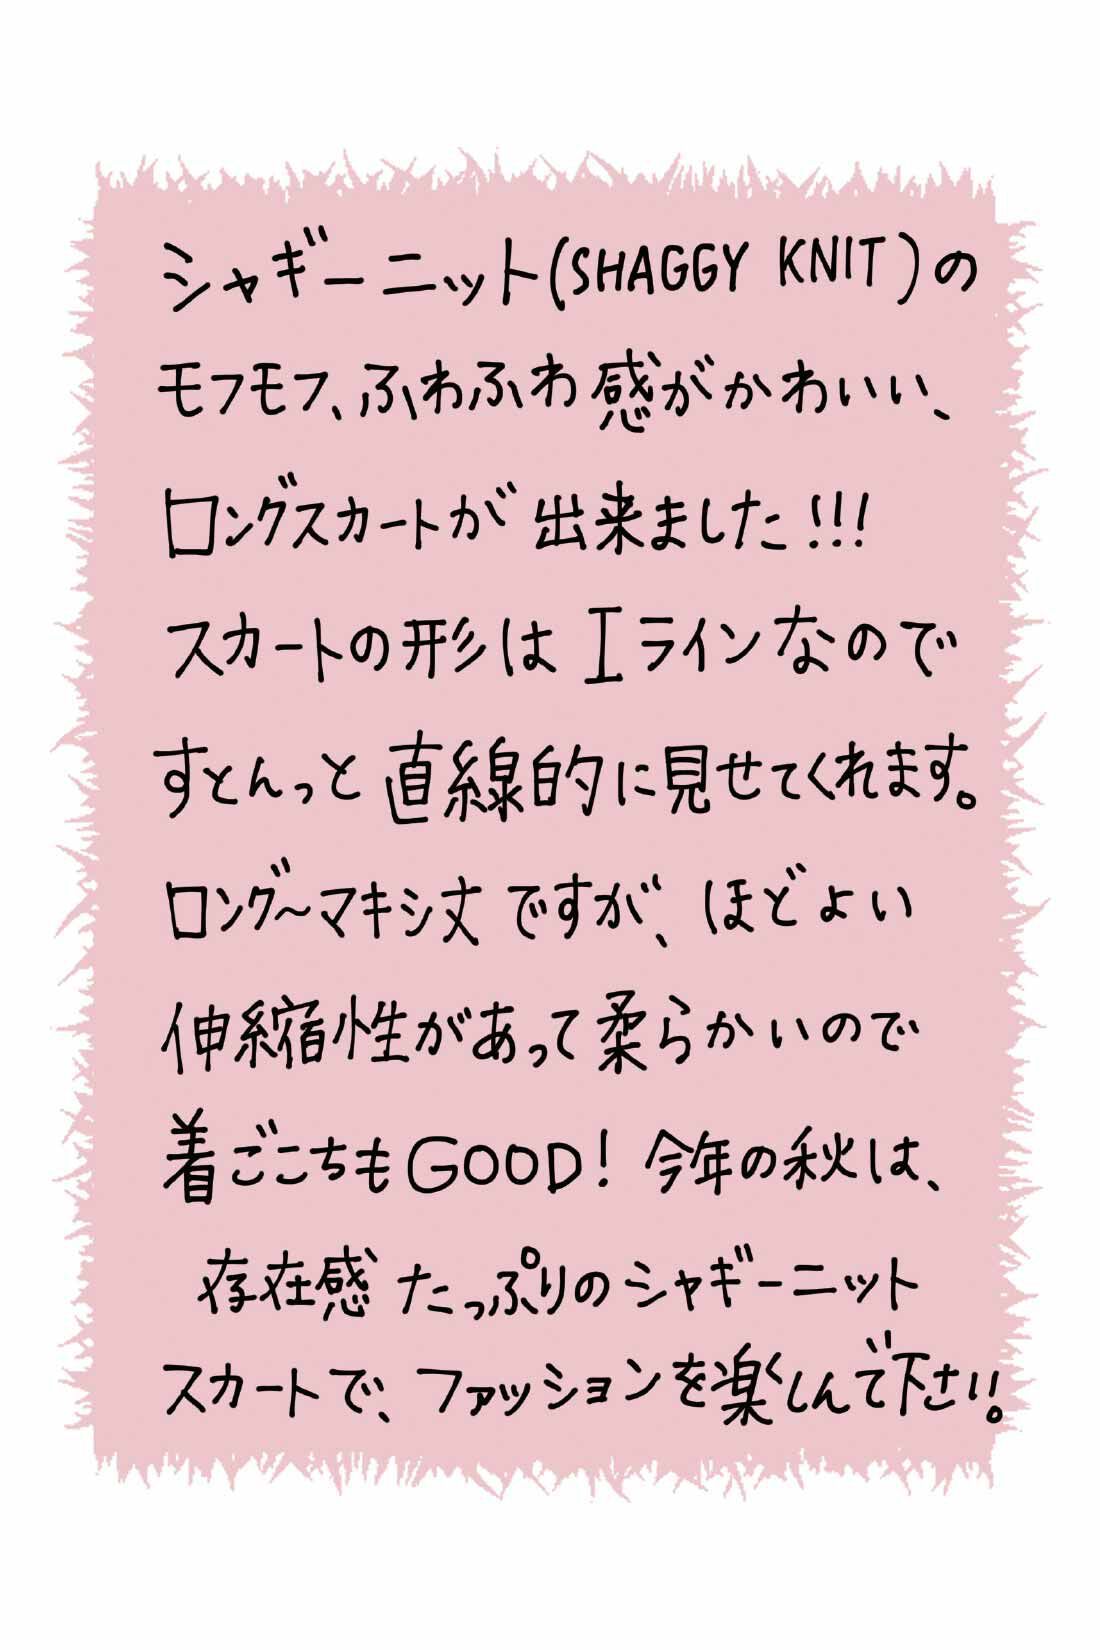 シャギーニット(SHAGGY KNIT)の
モフモフ、ふわふわ感がかわいい、
ロングスカートが出来ました!!!
スカートの形はIラインなので
すとんっと直線的に見せてくれます。
ロング〜マキシ丈ですが、ほどよい
伸縮性があって柔らかいので
着ごこちもGOOD!今年の秋は、
存在感たっぷりのシャギーニット
スカートで、ファッションを楽しんで下さい。